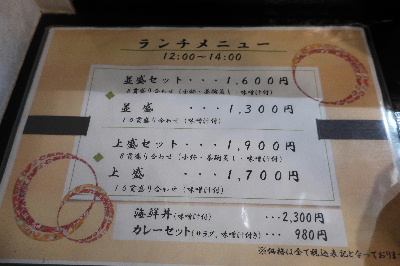 ランチメニュー
12:00~14:00
並盛セット・・・1,600円
8貫盛り合わせ(小鉢・茶碗蒸し・味噌汁付)
並 盛 ・・・1,300円
10貫盛り合わせ(味噌汁付)
上盛セット・・・1,900円
8貫盛り合わせ(小鉢・茶碗蒸し・味噌汁付)
上 盛 ・・・1,700円
10貫盛り合わせ(味噌汁付)
海鮮丼(味噌汁付) ・・・2,300円
カレーセット(サラダ、味噌汁付き) ・・・ 980円
※価格は全て税込表記となっております